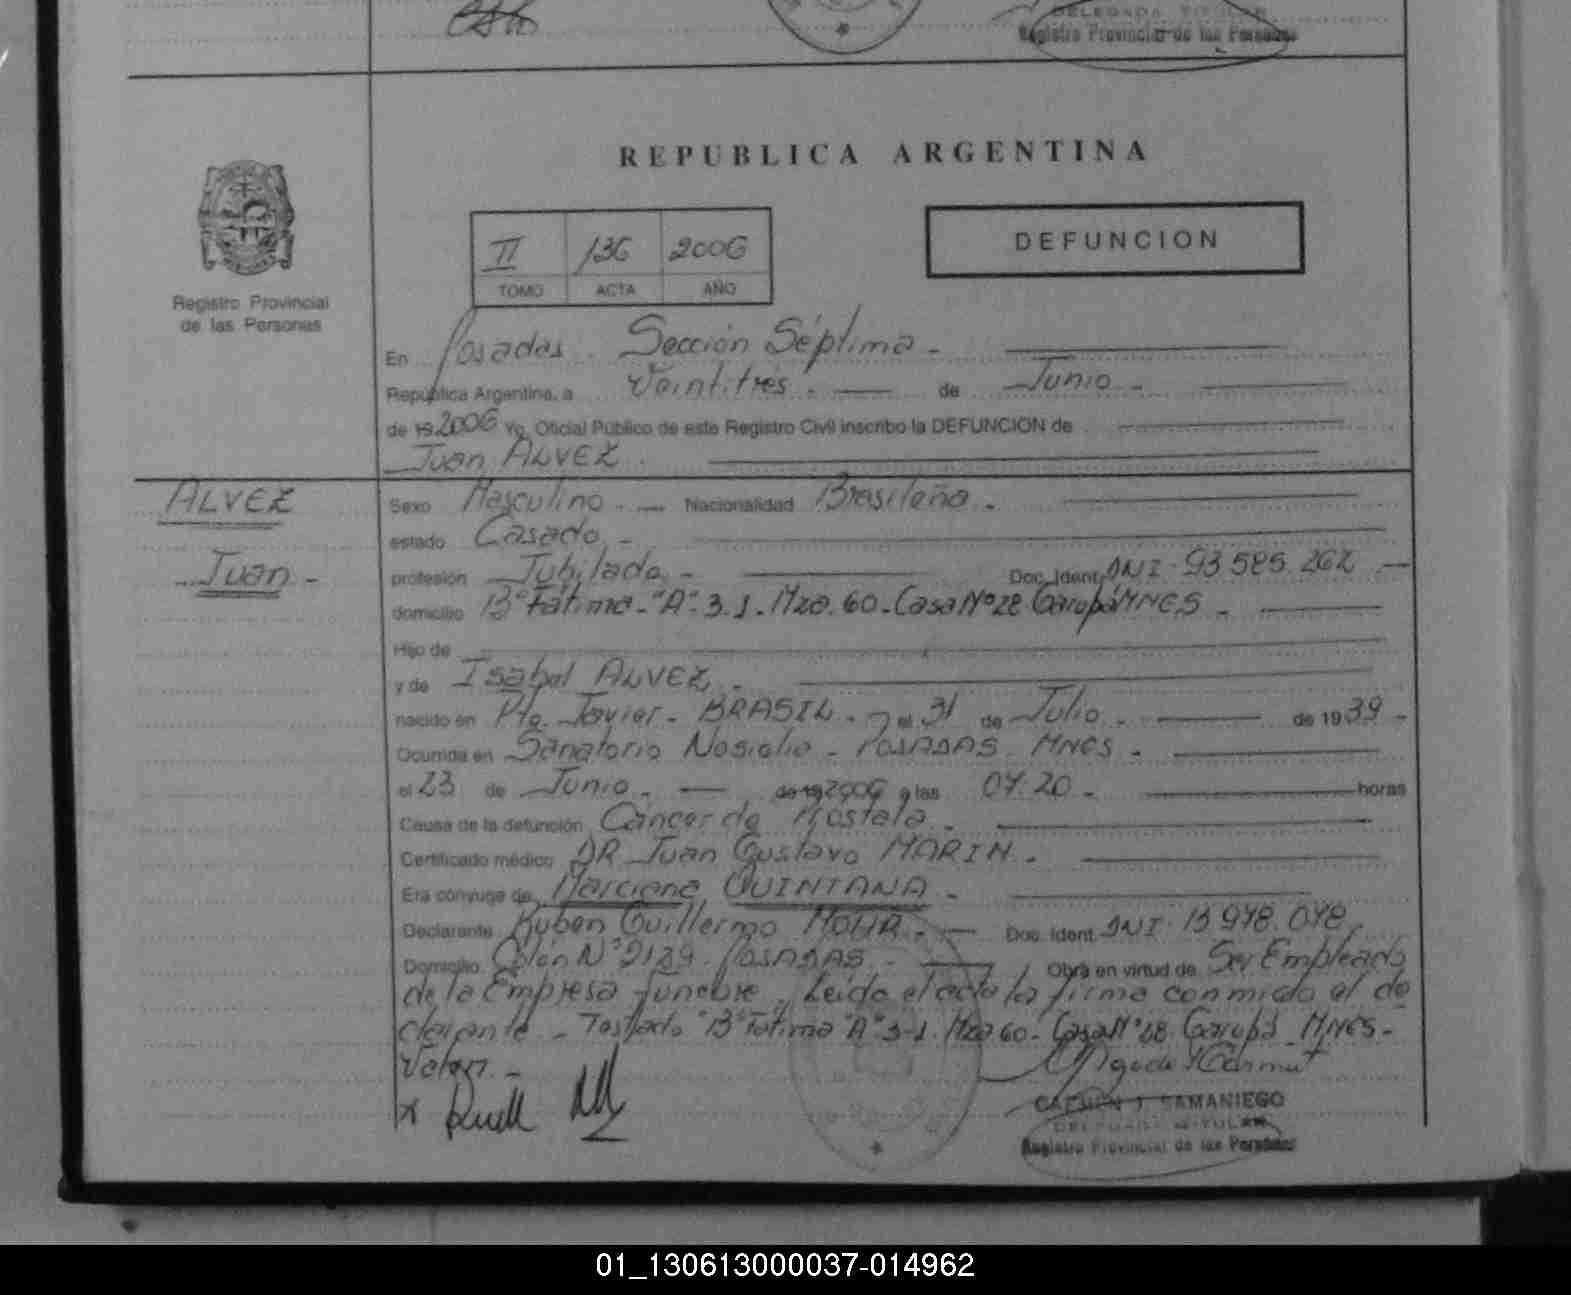 DELEGADA TITULAR
Registro Provincial de las Personas
REPUBLICA ARGENTINA
II 136 2006
TOMO ACTA AÑO
DEFUNCION
Registro Provincial
de las Personas
En Posadas. Sección Séptima.-
República Argentina, a Veintitrés.- de Junio.-
de 19 2006 Yo, Oficial Público de este Registro Civil inscribo la DEFUNCION de
Juan ALVEZ
ALVEZ
Juan.-
Sexo Masculino.- Nacionalidad Brasileña.-
estado Casado.-
profesión Jubilado.- Doc. Ident. DNI. 93.585.262
domicilio B° Fátima-"A".3.1.Mza.60.Casa N°28 Garupá MNES.-
Hijo de
y de Isabel ALVEZ.-
nacido en Pto. Javier- BRASIL.- el 31 de Julio.- de 1939-
Ocurrida en Sanatorio Nosiglia- POSADAS. MNES.-
el 23 de Junio.- de 19 2006 a las 07.20.- horas
Causa de la defunción Cáncer de Próstata.-
Certificado médico DR Juan Gustavo MARIN.-
Era cónyuge de Marciana QUINTANA.-
Declarante Ruben Guillermo Doc. Ident. DNI. 13.978.078
Domicilio Colón N° 2129. POSADAS.- Obra en virtud de Ser Empleado
de la Empresa fúnebre. Leída el acta la firma conmigo el de
clarante.- Testado "B° Fátima "A" 3-1. Mza 60- Casa N° 28. Garupá. MNES.-
Valen.-
x
CARMEN J. SAMANIEGO
DELEGADA TITULAR
Registro Provincial de las Personas
01_130613000037-014962